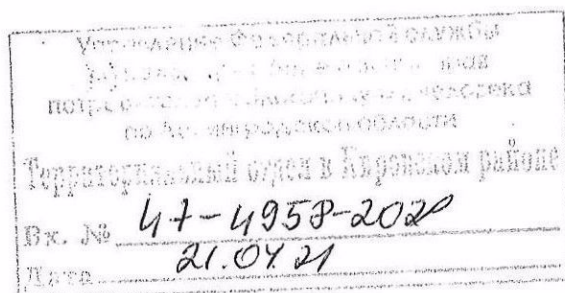 Управление Федеральной службы
по
потре человека
по Ленинградской области
Территориальный отдел в Кировском районе
Вх. № 47-4958-202
Дата 21.04.21